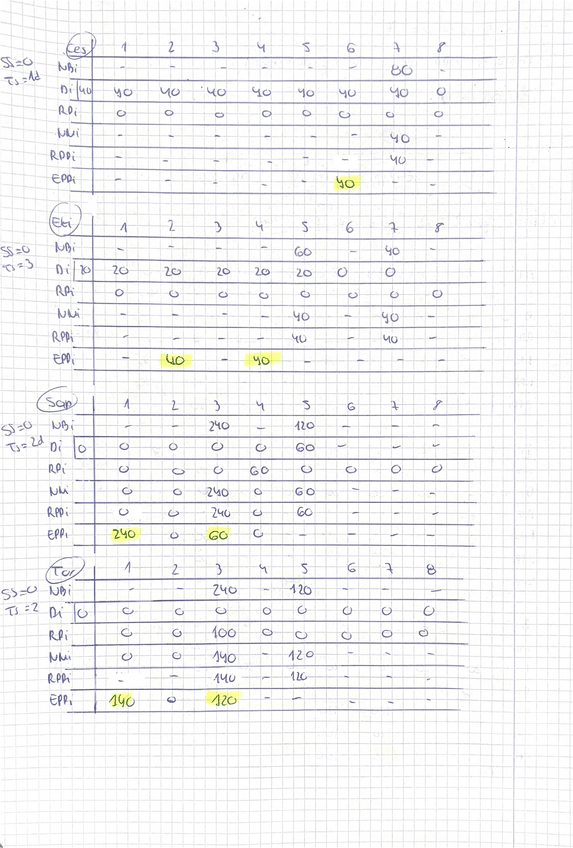 Ces 1 2 3 4 5 6 7 8
SS=0
TS=1d
NBi - - - - - - 80 -
Di 40 40 40 40 40 40 40 40 0
RPi 0 0 0 0 0 0 0 0
NNi - - - - - - 40 -
RPPi - - - - - - 40 -
EPPi - - - - - 40 - -
Eti 1 2 3 4 5 6 7 8
SS=0
TS=3
NBi - - - - 60 - 40 -
Di 20 20 20 20 20 20 0 0
RPi 0 0 0 0 0 0 0 0
NNi - - - - 40 - 40 -
RPPi - - - - 40 - 40 -
EPPi - 40 - 40 - - - -
Sop 1 2 3 4 5 6 7 8
SS=0
TS=2d
NBi - - 240 - 120 - - -
Di 0 0 0 0 0 60 - - -
RPi 0 0 0 60 0 0 0 0
NNi 0 0 240 0 60 - - -
RPPi 0 0 240 0 60 - - -
EPPi 240 0 60 0 - - - -
Tor 1 2 3 4 5 6 7 8
SS=0
TS=2
NBi - - 240 - 120 - - -
Di 0 0 0 0 0 0 0 0 0
RPi 0 0 100 0 0 0 0 0
NNi 0 0 140 - 120 - - -
RPPi - - 140 - 120 - - -
EPPi 140 0 120 - - - - -